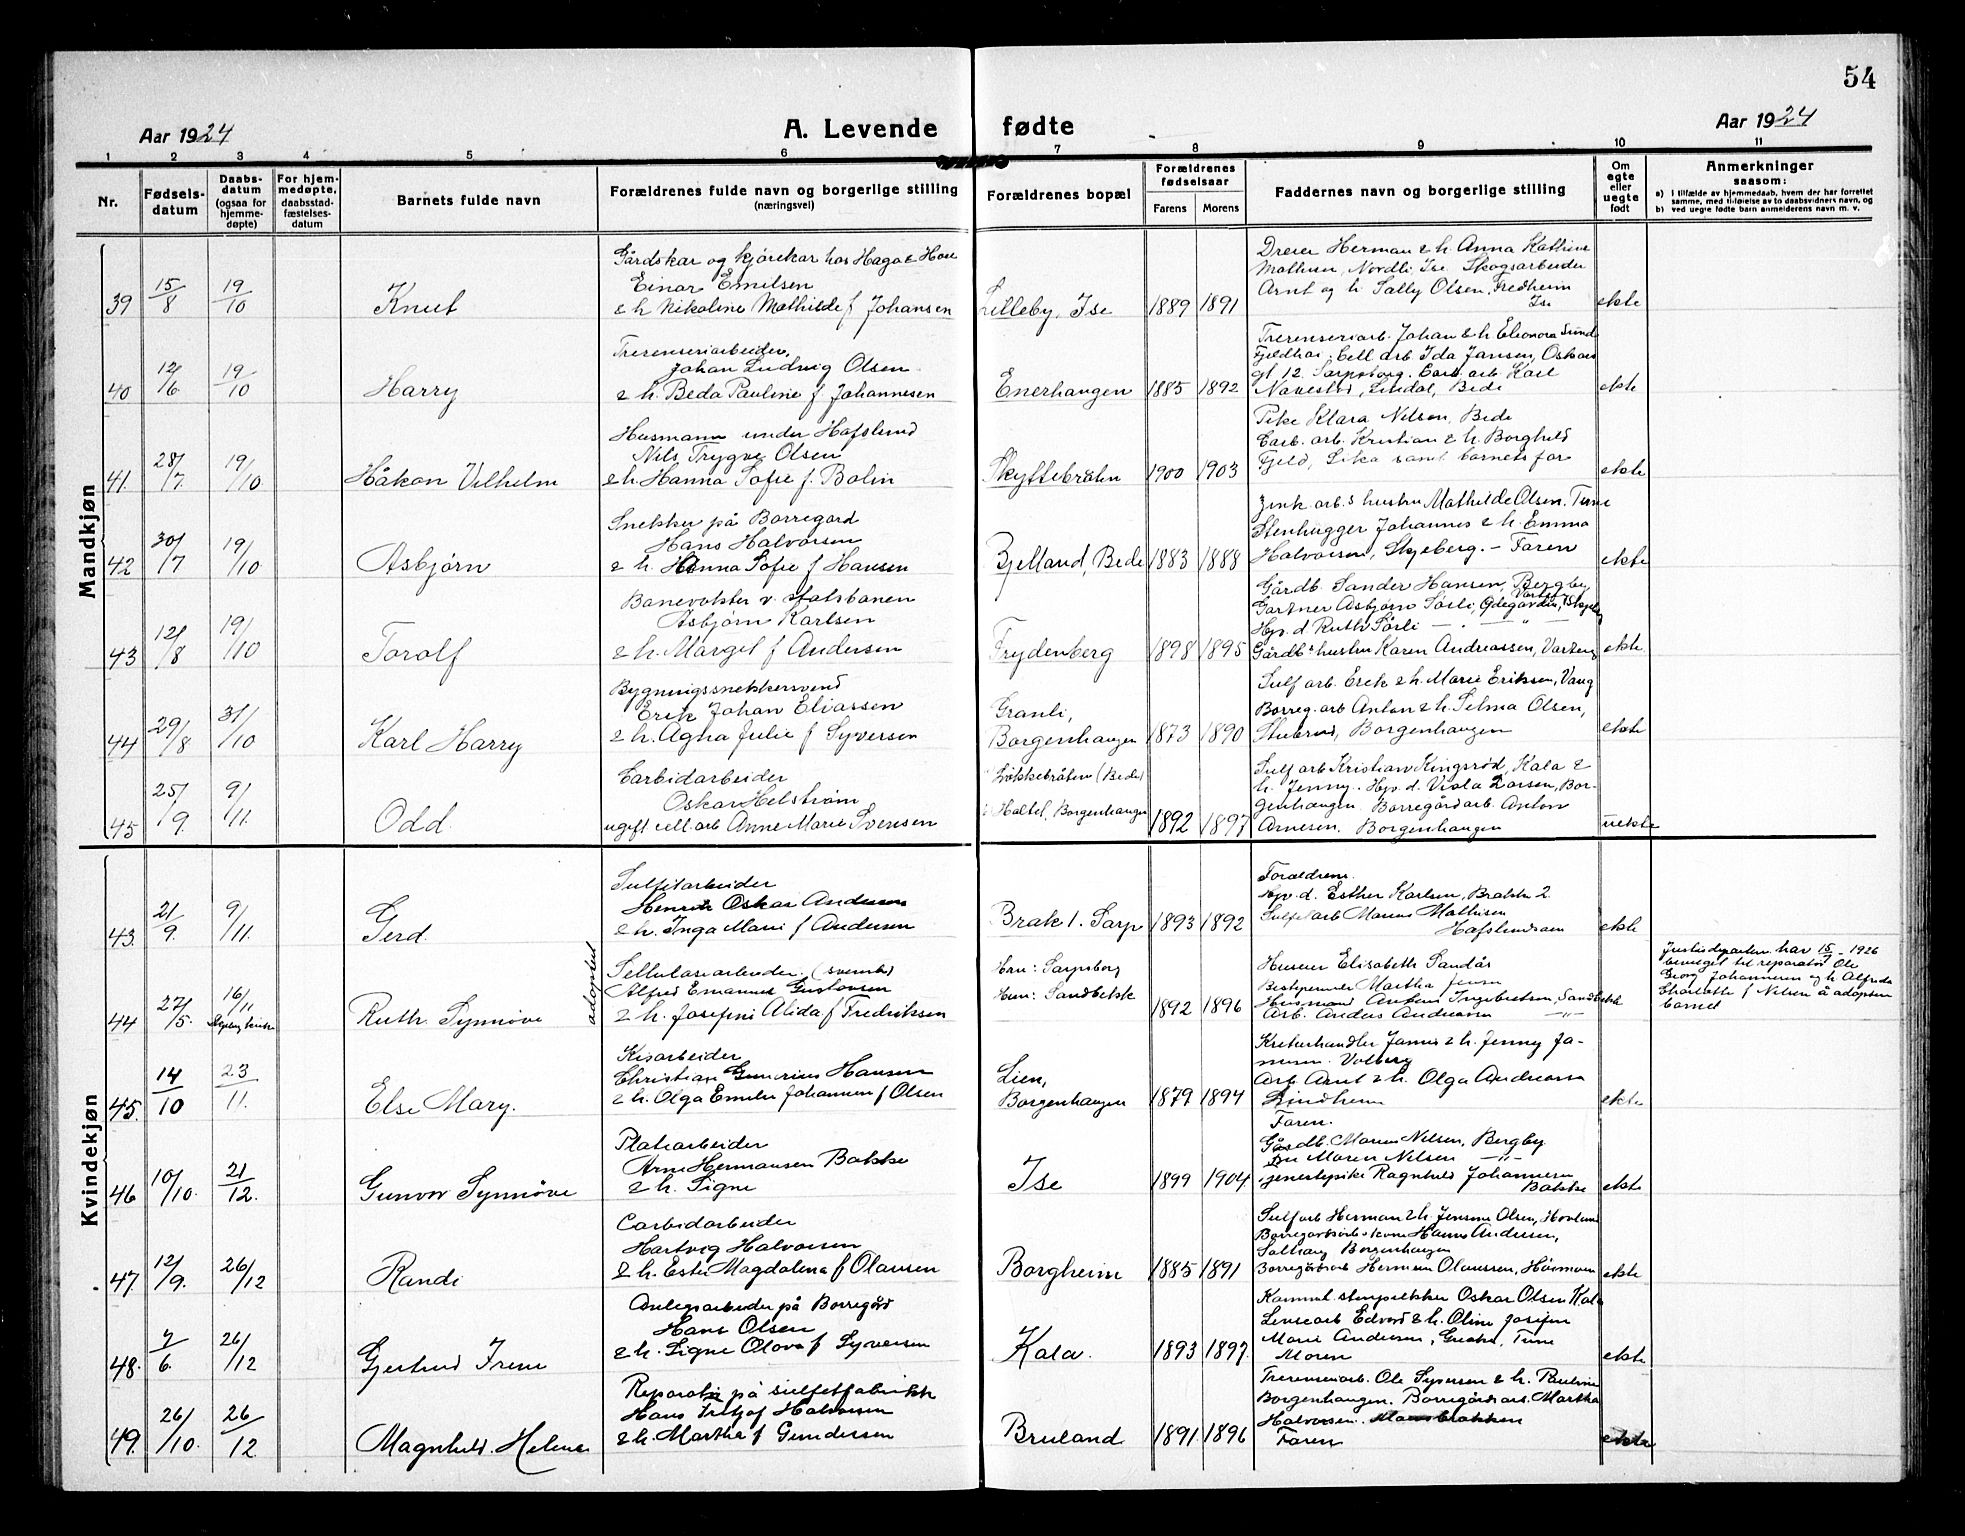 54
Aar 1924
A. Levende fødte
Aar 1924
1 2 3 4 5 6 7 8 9 10 11
Nr.
Fødselsdatum
Daabsdatum (ogsaa for hjemmedøpte)
For hjemmedøpte, daabsstadfæstelsesdatum
Barnets fulde navn
Forældrenes fulde navn og borgerlige stilling
(næringsvei)
Forældrenes bopæl
Forældrenes fødselsaar
Farens Morens
Faddernes navn og borgerlige stilling
Om egte eller uegte født
Anmerkninger
saasom:
a) i tilfælde av hjemmedaab, hvem der har forrettet samme, med tilføielse av to daabsvidners navn, og
b) ved uegte fødte barn anmelderens navn m. v.
Mandkjøn
39 15/8 19/10 Knut
Gårdskar og kjørekar hos Hago &
Einar Emilsen
& h. Nikoline Mathilde f Johansen
Lilleby, Ise 1889 1891
Dreier Herman & h. Anna Kathrine
Mathisen, Nordli Ise Skogsarbeider
Arnt og h Sally Olsen, Fredheim
Ise
ekte
40 12/6 19/10 Harry
Træsenseriarbeider,
Johan Ludvig Olsen
& h. Beda Pauline f Johannesen
Enerhaugen 1885 1892
Johan & h Eleonora
Cell. arb Ida Jansen, Oskars
gt 12. Sarpsborg. Carb. arb Karl
Navestad, Lindal, Bede
ekte
41 28/7 19/10 Håkon Vilhelm
Husmann under Hafslund
Nils Trygve Olsen
& h. Hanna Sofie f. Bolin
Skyttebråten 1900 1903
Pike Klara Nilsen, Bede
Carb. arb. Kristian & h. Borghild
Fjeld, samt barnets far
ekte
42 30/7 19/10 Asbjørn
Snekker på Borregard
Hans Halvorsen
& h. Hanna Sofie f Hansen
Bjelland, Bede 1883 1888
Zink arb.s hustru Mathilde Olsen. Tune
Stenhugger Johannes & h. Emma
Halvorsen, Skjeberg. - Faren
ekte
43 12/8 19/10 Torolf
Banevokter v. statsbanen
Asbjørn Karlsen
& h. Margit f Andersen
Frydenberg 1898 1895
Gårdb. Sander Hansen, Bergby
Varteig
Gartner Asbjørn Sørli, Ødegården,
Hp. d Ruth Sørli — " — " —
Gårdbs hustru Karen Andreassen, Varteig
ekte
44 29/8 31/10 Karl Harry
Bygningssnekkersvend
Erik Johan Eliassen
& h. Agna Julie f Syversen
Granli,
Borgenhaugen 1873 1890
Sulf arb. Erik & h. Marie Eriksen, Vang
Borreg. arb Anton & h. Selma Olsen,
Borgenhaugen
ekte
45 25/9. 9/11. Odd.
Carbidarbeider
Oskar Helstrøm
ugift cell. arb Anne Marie Svensen
Løkkebråten (Bede)
Haltet, Borgenhaugen 1892 1897
Sulf arb Kristian Kingsrød, Kala &
h. Jenny. Hp. d. Viola Larsen, Bor-
genhaugen. Borregårdarb. Anton
Arnesen. Borgenhaugen
uekte
Kvindekjøn
43. 21/9. 9/11. Gerd.
Sulfitarbeider
Henrik Oskar Andersen
& h. Inga Marie f Andersen
Brak 1. Sarp 1893 1892
Forældrene.
Hp. d. Esther Karlsen, Brakke 2
Sulfitarb Marius Mathisen
Hafslundsøen
ekte
44 27/5. 16/11 Ruth Synnøve
adoptert
Cellulosearbeider. (svensk)
Alfred Emanuel Gustavsen
& h. Josefine Alida f Fredriksen
Han: Sarpsborg
Hun: Sandbekk 1892 1896
Elisabeth Sandås
Bestyrerinde Martha Jensen
Husmand Anders Ingebretsen, Sandbekk
Arb. Anders Andreassen —"—
Justisdeparten. har 15/ - 1926
bevilget til reparatør Ole
Georg Johannesen og h. Alfrida
Charlotte f Nilsen å adoptere
barnet
45. 14/10 23/11. Else Mary.
Kisarbeider
Christian Gunerius Hansen
& h. Olga Emilie Johannesen f Olsen
Lien,
Borgenhaugen 1879 1894
& h. Jenny
Arb. Arnt & h. Olga Andreassen
Lindheim
Faren.
ekte
46 10/10. 21/12. Gunvor Synnøve
Platearbeider
Arne Hermansen Bakke
& h. Signe
Ise 1899 1904
Gårdb. Maren Nilsen, Bergby
Maren Nilsen —"—
Tjenestepike Ragnhild Johannesen
Bakke
ekte
47. 12/9. 26/12 Randi
Carbidarbeider
Hartvig Halvorsen
& h. Ester Magdalena f Olaussen
Borgheim 1885 1891
Sulfarb Herman & h. Jensine Olsen, Hovland
Hanna Andersen,
Solhaug Borgenhaugen
Borregårdsarb Herman Olaussen,
ekte
48. 7/6. 26/12 Gertrud Irene
Anlegsarbeider på Borregård
Hans Olsen
& h. Signe Olava f Syversen
Kala. 1893 1897.
Oskar Olsen Kala
Edvard & h. Oline Josefine
Marie Andersen, Tune
Moren
ekte
49. 26/10. 26/12 Magnhild Helene
Reparatør på sulfetfabrikk
Hans Fritjof Halvorsen
& h. Martha f Gundersen
Bruland 1891 1896
Ole Syversen & h. Pauline
Borgenhaugen. Borregårdsarb. Martha
Halvorsen.
Faren
ekte